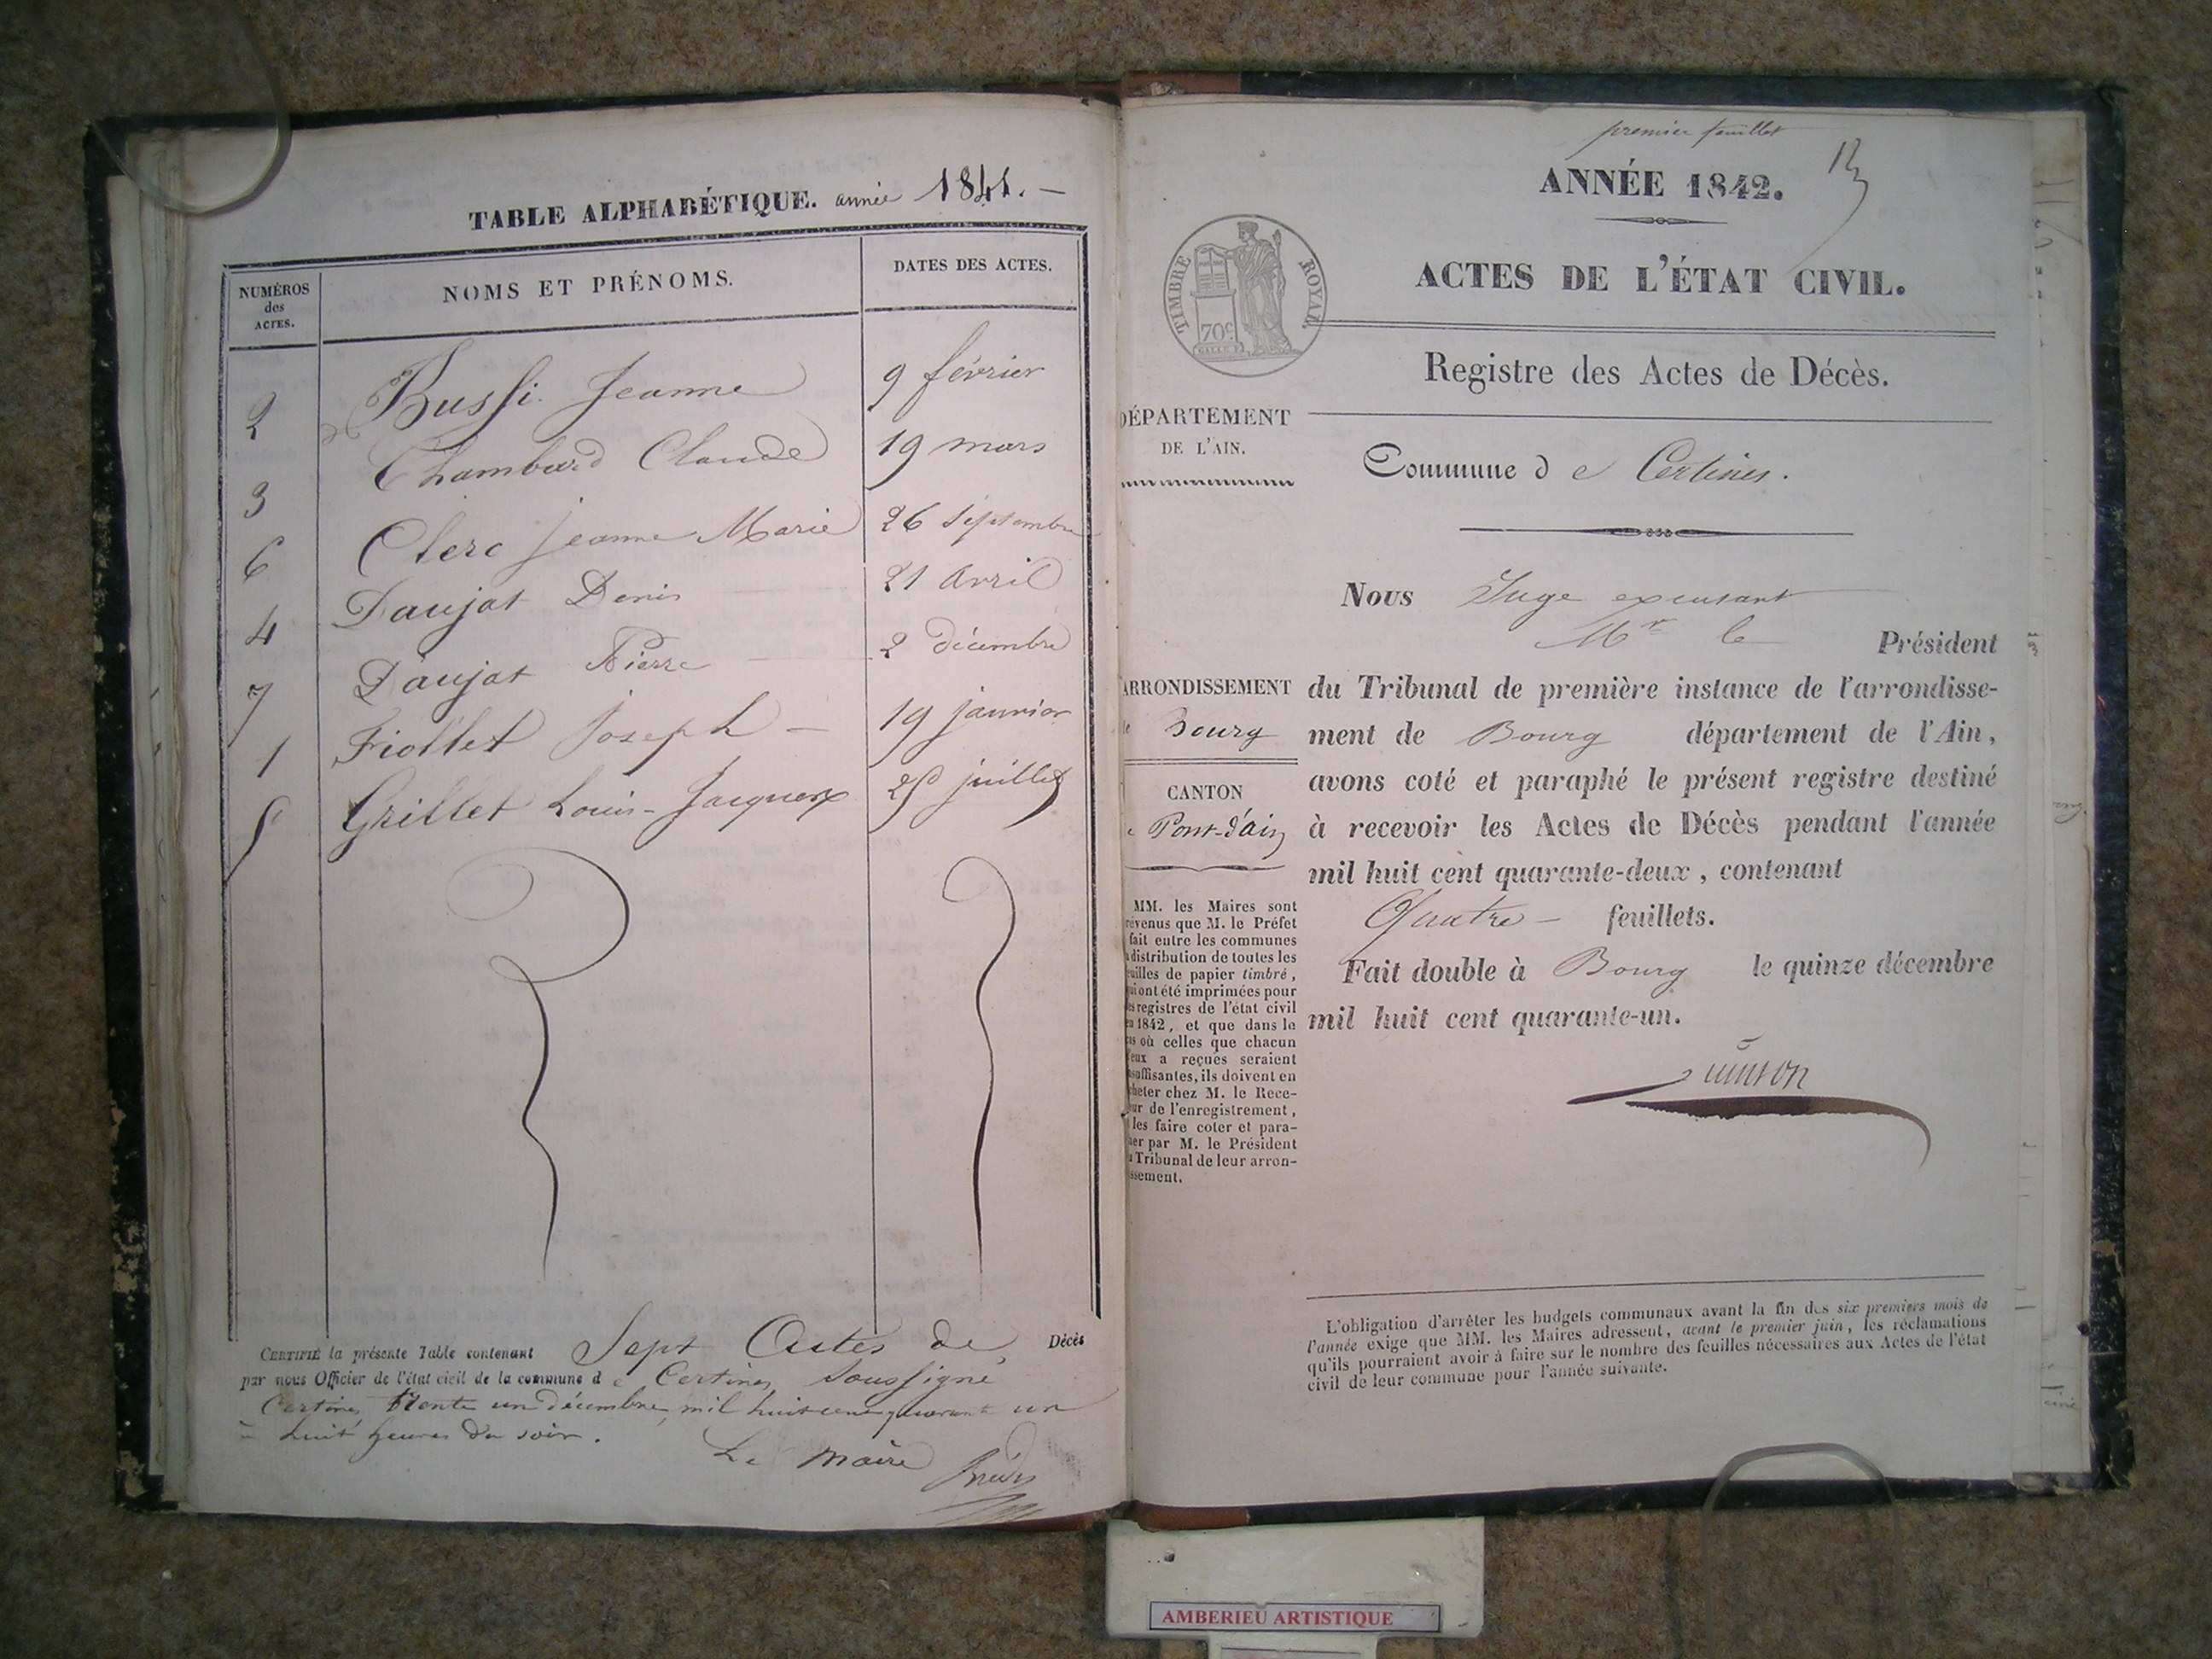 TABLE ALPHABÉTIQUE. année 1841. —
NUMÉROS
des
ACTES.
NOMS ET PRÉNOMS.
DATES DES ACTES.
2 Bussi Jeanne 9 février
3 Chambard Claude 19 mars
6 Clerc Jeanne Marie 26 septembre
4 Daujat Denis 21 avril
7 Daujat Pierre 2 décembre
1 Fiollet Joseph — 19 janvier
5 Grillet Louis-Jacques 25 juillet
CERTIFIÉ la présente Table contenant Sept Actes de Décès
par nous Officier de l'état civil de la commune de Certines soussigné
Certines trente un décembre mil huit cent quarante un
à huit heures du soir.
Le maire
premier feuillet
ANNÉE 1842.
ACTES DE L'ÉTAT CIVIL.
TIMBRE ROYAL
70c
Registre des Actes de Décès.
DÉPARTEMENT
DE L'AIN.
Commune de Certines.
Nous Juge excusant
Mr le Président
ARRONDISSEMENT
Bourg
CANTON
Pont-d'ain
du Tribunal de première instance de l'arrondisse-
ment de Bourg département de l'Ain,
avons coté et paraphé le présent registre destiné
à recevoir les Actes de Décès pendant l'année
mil huit cent quarante-deux, contenant
Quatre — feuillets.
Fait double à Bourg le quinze décembre
mil huit cent quarante-un.
MM. les Maires sont
révenus que M. le Préfet
fait entre les communes
distribution de toutes les
uilles de papier timbré,
ui ont été imprimées pour
es registres de l'état civil
n 1842, et que dans le
as où celles que chacun
eux a reçues seraient
suffisantes, ils doivent en
heter chez M. le Rece-
ur de l'enregistrement,
les faire coter et para-
her par M. le Président
u Tribunal de leur arron-
issement.
L'obligation d'arrêter les budgets communaux avant la fin des six premiers mois de
l'année exige que MM. les Maires adressent, avant le premier juin, les réclamations
qu'ils pourraient avoir à faire sur le nombre des feuilles nécessaires aux Actes de l'état
civil de leur commune pour l'année suivante.
AMBERIEU ARTISTIQUE